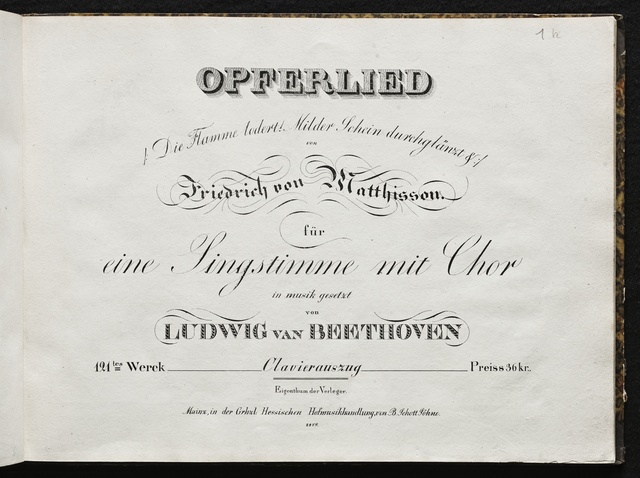 1 k
OPFERLIED
/: Die Flamme lodert! Milder Schein durchglänzt &:/
von
Friedrich von Matthisson.
für
eine Singstimme mit Chor
in musik gesetzt
von
LUDWIG VAN BEETHOVEN
121tes Werck Clavierauszug Preis 36 kr.
Eigenthum der Verleger.
Mainz, in der Grhzl. Hessischen Hofmusikhandlung von B. Schott Söhne.